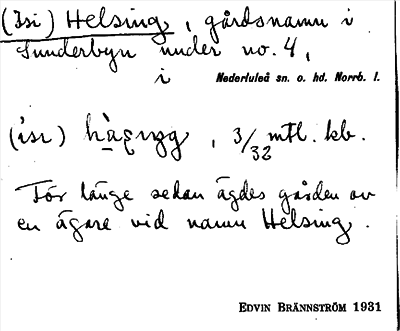 (Isi) Helsing, gårdsnamn i
Sunderbyn under no. 4,
i Nederluleå sn. o. hd. Norrb. l.
(isi) , 3/32 mtl. kb.
För länge sedan ägdes gården av
en ägare vid namn Helsing.
EDVIN BRÄNNSTRÖM 1931